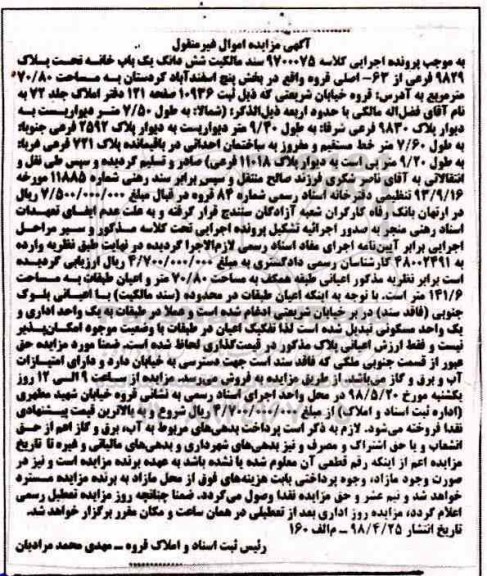 آگهی مزایده اموال غیرمنقول
به موجب پرونده اجرایی کلاسه ۹۷۰۰۰۷۵ سند مالکیت شش دانگ یک باب خانه تحت پلاک
۹۸۲۹ فرعی از ۶۳- اصلی قروه واقع در بخش پنج اسفندآباد کردستان به مساحت ۷۰/۸۰
مترمربع به آدرس: قروه خیابان شریعتی که ذیل ثبت ۱۰۹۳۶ صفحه ۱۲۱ دفتر املاک جلد ۷۲ به
نام آقای فضل‌اله مالکی با حدود اربعه ذیل‌الذکر: (شمالا: به طول ۷/۵۰ متر دیواریست به
دیوار پلاک ۹۸۳۰ فرعی شرقا: به طول ۹/۴۰ متر دیواریست به دیوار پلاک ۲۵۹۲ فرعی جنوبا:
به طول ۷/۶۰ متر خط مستقیم و مفروز به ساختمان احداثی در باقیمانده پلاک ۷۲۱ فرعی غربا:
به طول ۹/۲۰ متر بی است به دیوار پلاک ۱۱۰۱۸ فرعی) صادر و تسلیم گردیده و سپس طی نقل و
انتقالاتی به آقای ناصر شکری فرزند صالح منتقل و سپس برابر سند رهنی شماره ۱۱۸۸۵ مورخه
۹۳/۹/۱۶ تنظیمی دفترخانه اسناد رسمی شماره ۸۴ قروه در قبال مبلغ ۷/۵۰۰/۰۰۰/۰۰۰ ریال
در ارتهان بانک رفاه کارگران شعبه آزادگان سنندج قرار گرفته و به علت عدم ایفای تعهدات
اسناد رهنی منجر به صدور اجرائیه تشکیل پرونده اجرایی تحت کلاسه مذکور و سیر مراحل
اجرایی برابر آیین‌نامه اجرای مفاد اسناد رسمی لازم‌الاجرا گردیده در نهایت طبق نظریه وارده
به ۴۸۰۰۲۴۹۱ کارشناسان رسمی دادگستری به مبلغ ۴/۷۰۰/۰۰۰/۰۰۰ ریال ارزیابی گردیده
است برابر نظریه مذکور اعیانی طبقه همکف به مساحت ۷۰/۸۰ متر و اعیان طبقات به مساحت
۱۴۱/۶ متر است. با توجه به اینکه اعیان طبقات در محدوده (سند مالکیت) با اعیانی بلوک
جنوبی (فاقد سند) در بر خیابان شریعتی ادغام شده است و عملا در طبقات به یک واحد اداری و
یک واحد مسکونی تبدیل شده است لذا تفکیک اعیان در طبقات با وضعیت موجود امکان‌پذیر
نیست و فقط ارزش اعیانی پلاک مذکور در قیمت‌گذاری لحاظ شده است. ضمنا مورد مزایده حق
عبور از قسمت جنوبی ملکی که فاقد سند است جهت دسترسی به خیابان دارد و دارای امتیازات
آب و برق و گاز می‌باشد. از طریق مزایده به فروش می‌رسد. مزایده از ساعت ۹ الی ۱۲ روز
یکشنبه مورخ ۹۸/۵/۲۰ در محل واحد اجرای اسناد رسمی به نشانی قروه خیابان شهید مطهری
(اداره ثبت اسناد و املاک) از مبلغ ۴/۷۰۰/۰۰۰/۰۰۰ ریال شروع و به بالاترین قیمت پیشنهادی
نقدا فروخته می‌شود. لازم به ذکر است پرداخت بدهی‌های مربوط به آب، برق و گاز اعم از حق
انشعاب و یا حق اشتراک و مصرف و نیز بدهی‌های شهرداری و بدهی‌های مالیاتی و غیره تا تاریخ
مزایده اعم از اینکه رقم قطعی آن معلوم شده یا نشده باشد به عهده برنده مزایده است و نیز در
صورت وجود مازاد، وجوه پرداختی بابت هزینه‌های فوق از محل مازاد به برنده مزایده مسترد
خواهد شد و نیم عشر و حق مزایده نقدا وصول می‌گردد. ضمنا چنانچه روز مزایده تعطیل رسمی
اعلام گردد، مزایده روز اداری بعد از تعطیلی در همان ساعت و مکان مقرر برگزار خواهد شد.
تاریخ انتشار ۹۸/۴/۲۵ ــ م‌الف ۱۶۰
رئیس ثبت اسناد و املاک قروه ــ مهدی محمد مرادیان